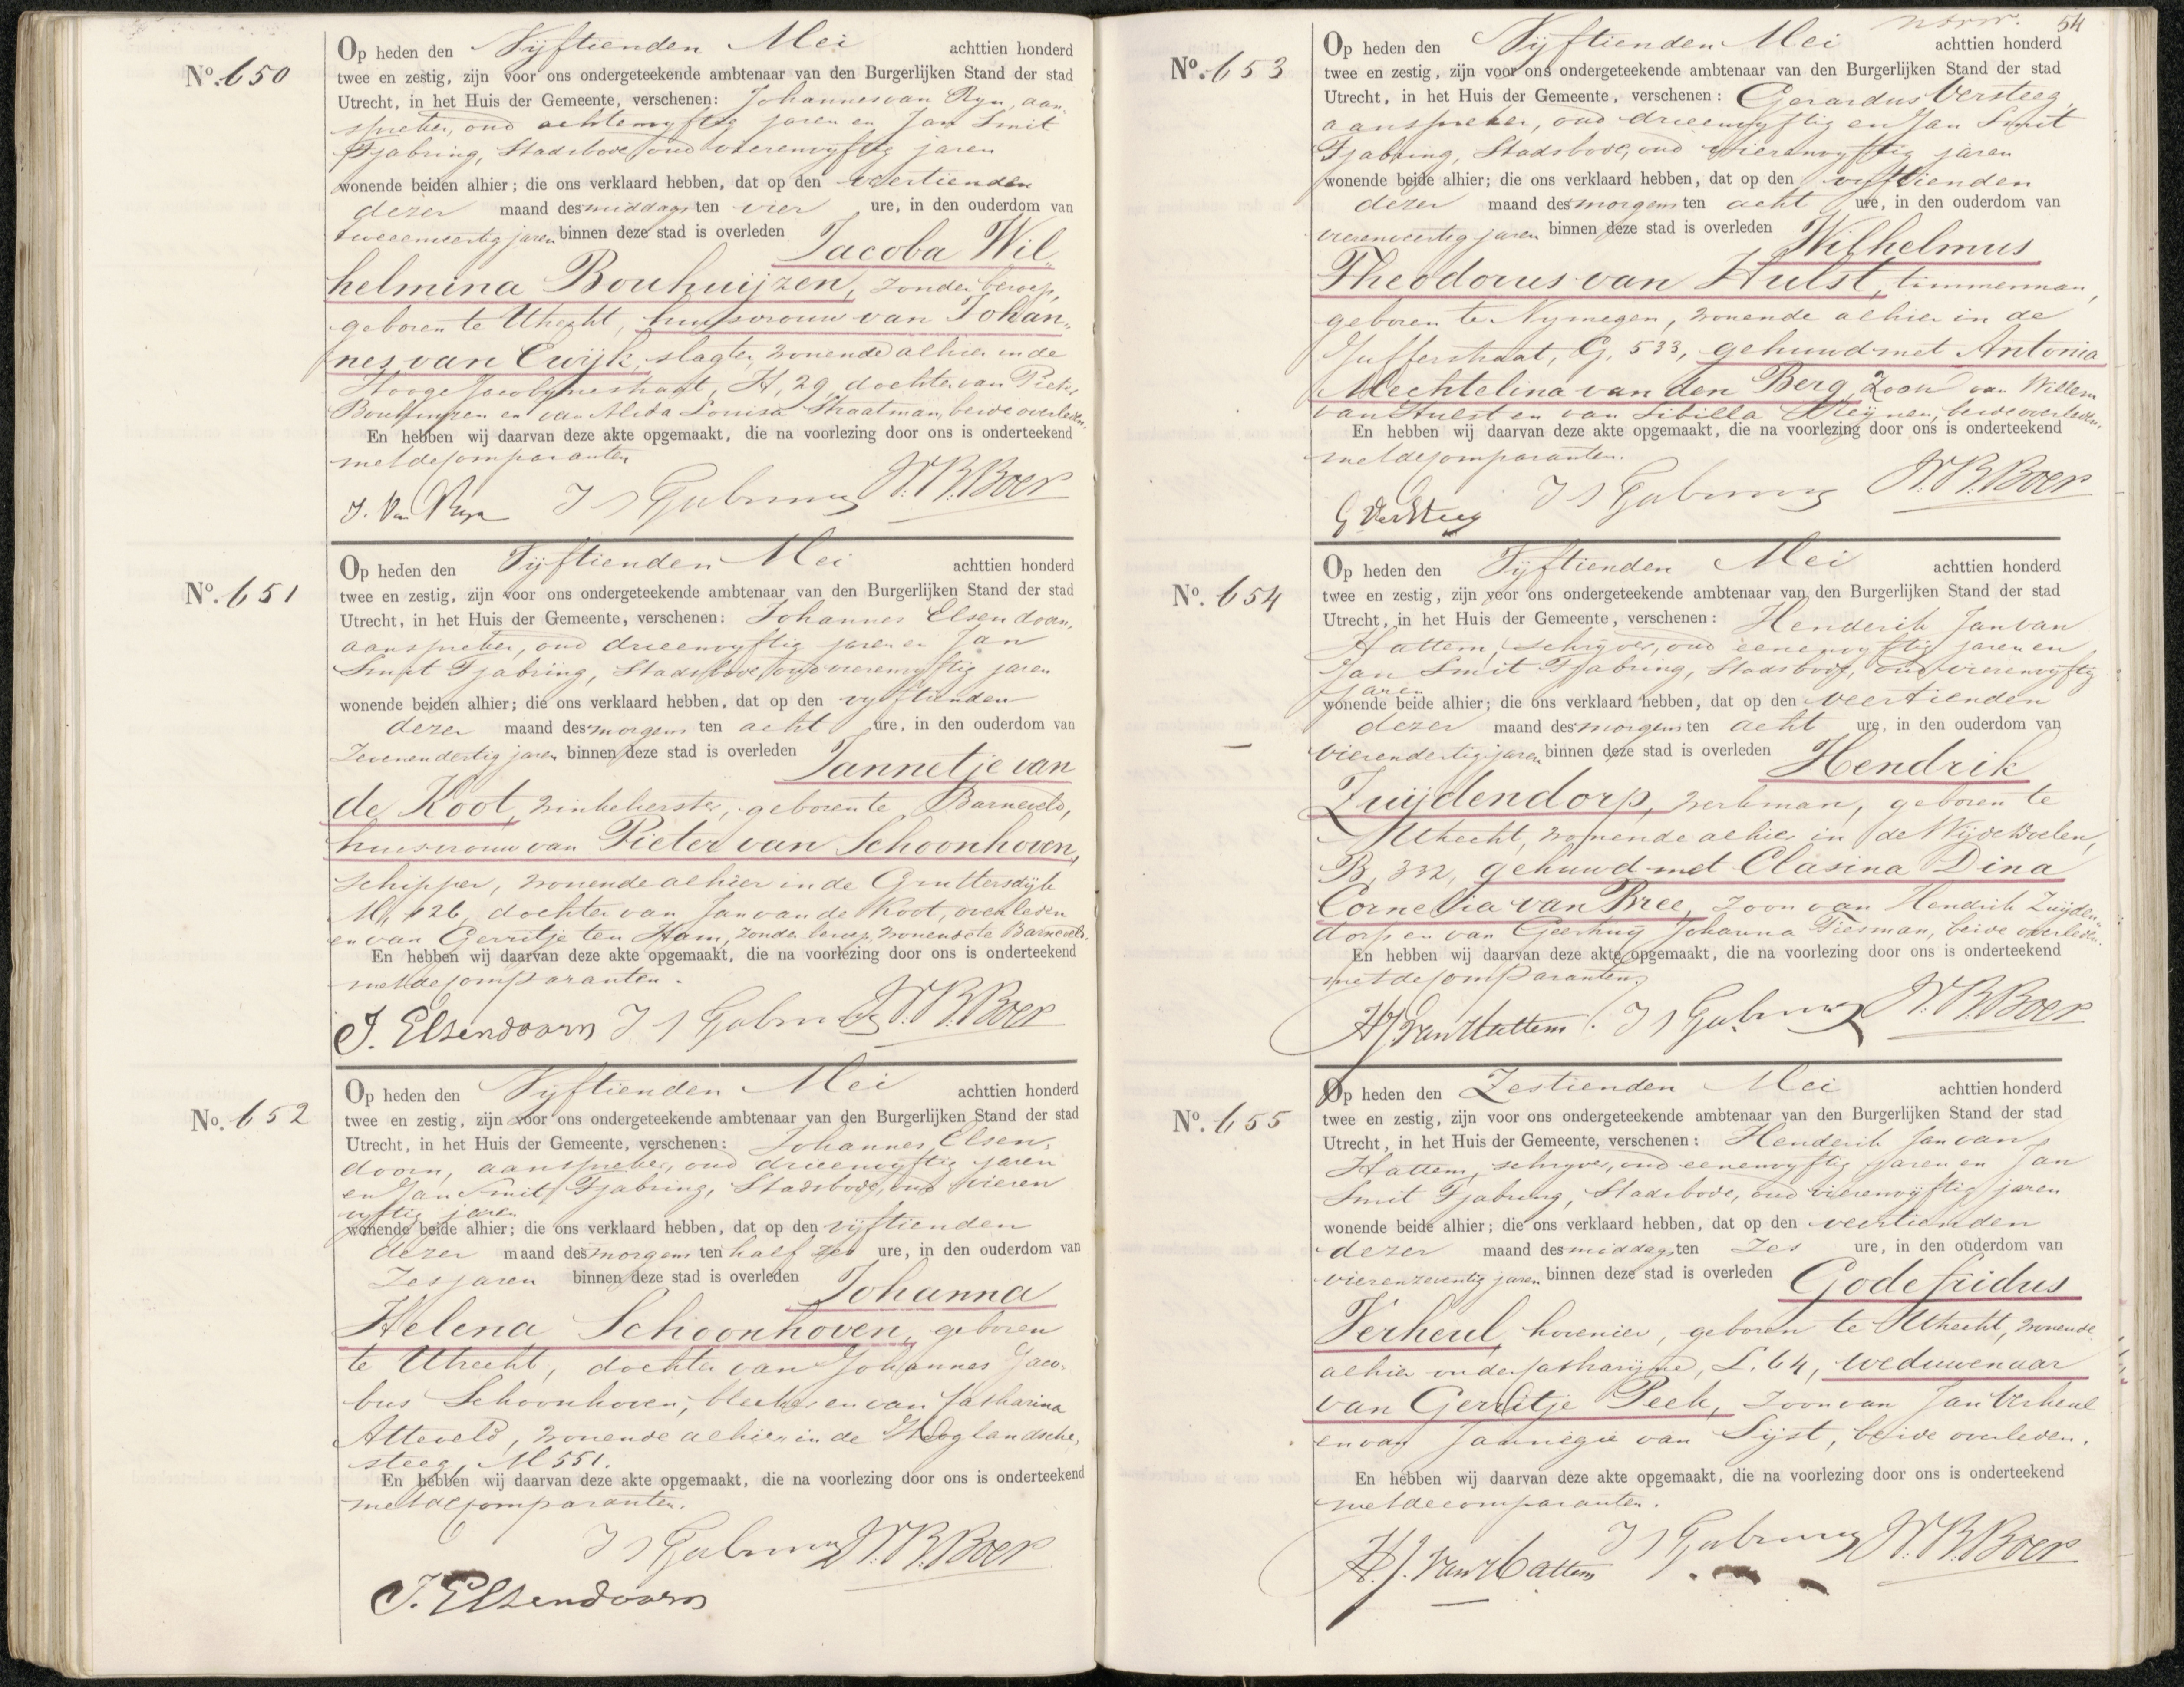 No. 650
Op heden den Vijftienden Mei achttien honderd
twee en zestig, zijn voor ons ondergeteekende ambtenaar van den Burgerlijken Stand der stad
Utrecht, in het Huis der Gemeente, verschenen: Johannes van Ryn, aan-
spreker, oud achtenvyftig jaren en Jan Smit
Tjabring, Stadsbode, oud vierenvyftig jaren
wonende beiden alhier; die ons verklaard hebben, dat op den veertienden
dezer maand des middags ten vier ure, in den ouderdom van
tweeenveertig jaren binnen deze stad is overleden Jacoba Wil-
helmina Bouhuijzen, zonder beroep,
geboren te Utrecht, huisvrouw van Johan-
nes van Ewijk, slagter, wonende alhier in de
Hooge Jacobynestraat, H, 29, dochter van Pieter
Bouhuijzen en van Alida Louisa Straatman, beide overleden.
En hebben wij daarvan deze akte opgemaakt, die na voorlezing door ons is onderteekend
met de comparanten
J. Van Ryn J S Tjabring W.B.Boer
No. 651
Op heden den Vijftienden Mei achttien honderd
twee en zestig, zijn voor ons ondergeteekende ambtenaar van den Burgerlijken Stand der stad
Utrecht, in het Huis der Gemeente, verschenen: Johannes Elsendoorn,
aanspreker, oud drieenvyftig jaren en Jan
Smit Tjabring, Stadsbode, oud vierenvyftig jaren
wonende beiden alhier; die ons verklaard hebben, dat op den vyftienden
dezer maand des morgens ten acht ure, in den ouderdom van
Zevenendertig jaren binnen deze stad is overleden Jannetje van
de Koot, winkelierster, geboren te Barneveld,
huisvrouw van Pieter van Schoonhoven,
schipper, wonende alhier in de Gruttersdyk
M, 126, dochter van Jan van de Koot, overleden
en van Gerritje ten Ham, zonder beroep, wonende te Barneveld.
En hebben wij daarvan deze akte opgemaakt, die na voorlezing door ons is onderteekend
met de comparanten.
J. Elsendoorn J S Tjabring W.B.Boer
No. 652
Op heden den Vijftienden Mei achttien honderd
twee en zestig, zijn voor ons ondergeteekende ambtenaar van den Burgerlijken Stand der stad
Utrecht, in het Huis der Gemeente, verschenen: Johannes Elsen-
doorn, aanspreker, oud drieenvyftig jaren
en Jan Smit Tjabring, Stadsbode, oud vieren
vyftig jaren
wonende beide alhier; die ons verklaard hebben, dat op den vijftienden
dezer maand des morgens ten half zes ure, in den ouderdom van
Zes jaren binnen deze stad is overleden Johanna
Helena Schoonhoven, geboren
te Utrecht, dochter van Johannes Jaco-
bus Schoonhoven, bleeker en van Catharina
Atteveld, wonende alhier in de Hooglandsche,
steeg, M 551.
En hebben wij daarvan deze akte opgemaakt, die na voorlezing door ons is onderteekend
met de comparanten.
J S Tjabring W.B.Boer
J. Elsendoorn
54
No. 653
Op heden den Vijftienden Mei achttien honderd
twee en zestig, zijn voor ons ondergeteekende ambtenaar van den Burgerlijken Stand der stad
Utrecht, in het Huis der Gemeente, verschenen: Gerardus Versteeg,
aanspreker, oud drieenvyftig en Jan Smit
Tjabring, Stadsbode, oud vierenvyftig jaren
wonende beide alhier; die ons verklaard hebben, dat op den vyftienden
dezer maand des morgens ten acht ure, in den ouderdom van
vierenveertig jaren binnen deze stad is overleden Wilhelmus
Theodorus van Hulst, timmerman,
geboren te Nymegen, wonende alhier in de
Jufferstraat, G, 533, gehuwd met Antonia
Mechtelina van den Berg, Zoon van Willem
van Hulst en van Sibilla Reijnen, beide overleden.
En hebben wij daarvan deze akte opgemaakt, die na voorlezing door ons is onderteekend
met de comparanten.
G Versteeg J S Tjabring W.B.Boer
No. 654
Op heden den Vijftienden Mei achttien honderd
twee en zestig, zijn voor ons ondergeteekende ambtenaar van den Burgerlijken Stand der stad
Utrecht, in het Huis der Gemeente, verschenen: Henderik Jan van
Hattem, schryver, oud eenenvyftig jaren en
Jan Smit Tjabring, Stadsbode, oud vierenvyftig
jaren
wonende beide alhier; die ons verklaard hebben, dat op den veertienden
dezer maand des morgens ten acht ure, in den ouderdom van
vierendertig jaren binnen deze stad is overleden Hendrik
Zuijdendorp, werkman, geboren te
Utrecht, wonende alhier in de Wijde Doelen,
B, 332, gehuwd met Clasina Dina
Cornelia van Bree, zoon van Hendrik Zuijden-
dorp en van Geertruy Johanna Tiesman, beide overleden.
En hebben wij daarvan deze akte opgemaakt, die na voorlezing door ons is onderteekend
met de comparanten.
H.J. van Hattem. J S Tjabring W.B.Boer
No. 655
Op heden den Zestienden Mei achttien honderd
twee en zestig, zijn voor ons ondergeteekende ambtenaar van den Burgerlijken Stand der stad
Utrecht, in het Huis der Gemeente, verschenen: Henderik Jan van
Hattem, schryver, oud eenenvyftig jaren en Jan
Smit Tjabring, Stadsbode, oud vierenvyftig jaren
wonende beide alhier; die ons verklaard hebben, dat op den veertienden
dezer maand des middags ten zes ure, in den ouderdom van
vierenzeventig jaren binnen deze stad is overleden Godefridus
Verheul, hovenier, geboren te Utrecht, wonende
alhier onder Catharyne, L. 64, weduwenaar
van Gerritje Peek, zoon van Jan Verheul
en van Jannigie van Sijst, beide overleden.
En hebben wij daarvan deze akte opgemaakt, die na voorlezing door ons is onderteekend
met de comparanten.
H.J. van Hattem J S Tjabring W.B.Boer